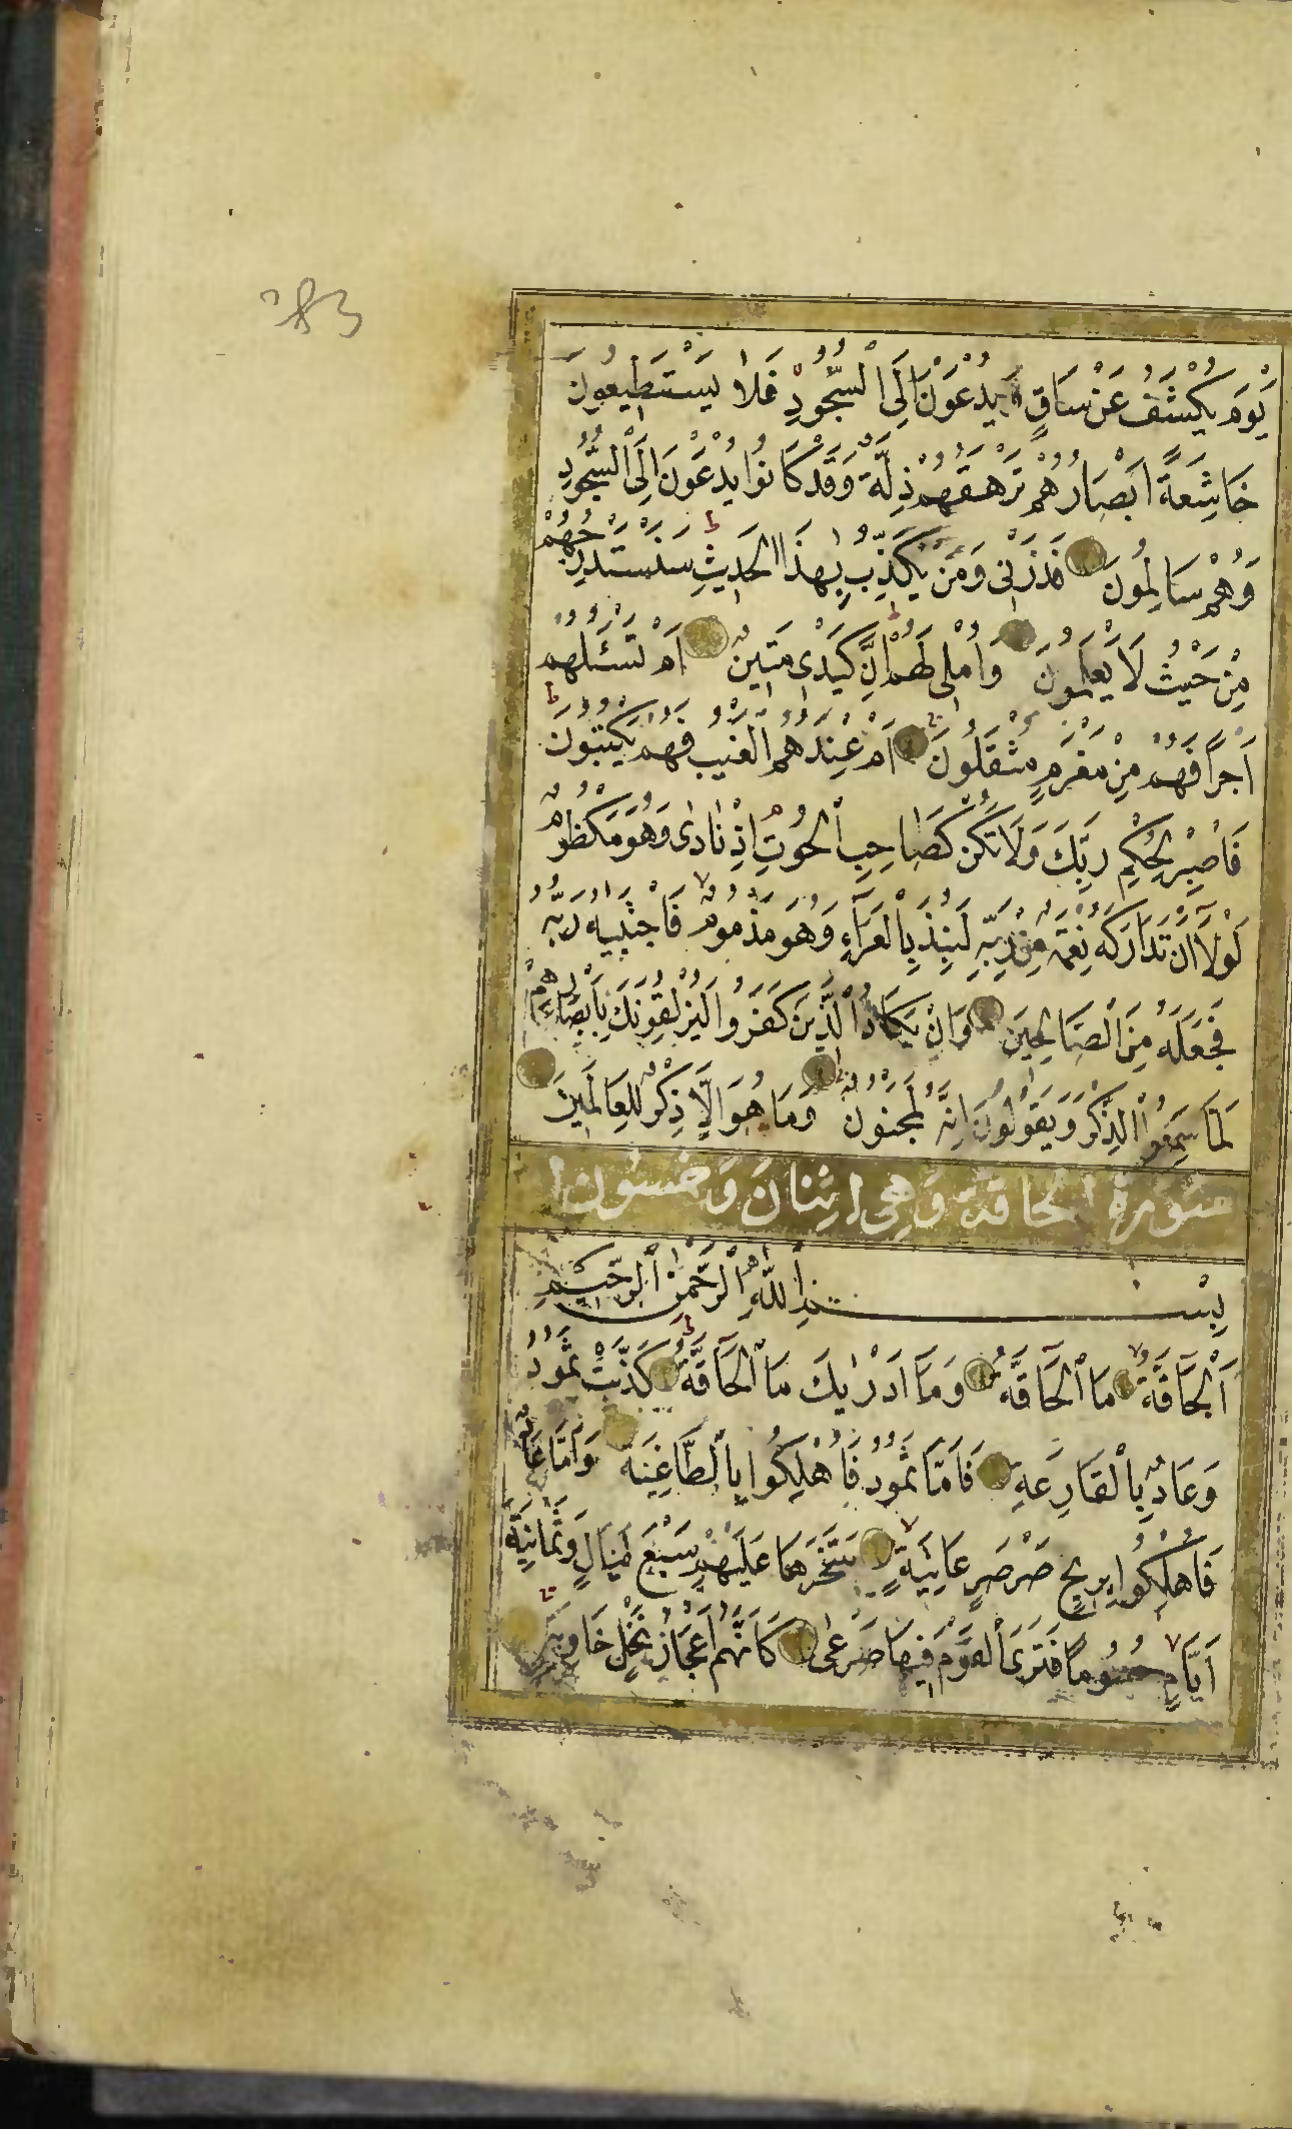 يَوْمَ يُكْشَفُ عَنْ سَاقٍ وَيُدْعَوْنَ اِلَى السُّجُودِ فَلَا يَسْتَطِيعُونَ
خَاشِعَةً اَبْصَارُهُمْ تَرْهَقُهُمْ ذِلَّةٌ وَقَدْ كَانُوا يُدْعَوْنَ اِلَى السُّجُودِ
وَهُمْ سَالِمُونَ فَذَرْنِى وَمَنْ يُكَذِّبُ بِهٰذَا الْحَدِيثِ سَنَسْتَدْرِجُهُمْ
مِنْ حَيْثُ لَا يَعْلَمُونَ وَاُمْلِى لَهُمْ اِنَّ كَيْدِى مَتِينٌ اَمْ تَسْـَٔلُهُمْ
اَجْرًا فَهُمْ مِنْ مَغْرَمٍ مُثْقَلُونَ اَمْ عِنْدَهُمُ الْغَيْبُ فَهُمْ يَكْتُبُونَ
فَاصْبِرْ لِحُكْمِ رَبِّكَ وَلَا تَكُنْ كَصَاحِبِ الْحُوتِ اِذْ نَادٰى وَهُوَ مَكْظُومٌ
لَوْلَا اَنْ تَدَارَكَهُ نِعْمَةٌ مِنْ رَبِّهِ لَنُبِذَ بِالْعَرَاءِ وَهُوَ مَذْمُومٌ فَاجْتَبٰيهُ رَبُّهُ
فَجَعَلَهُ مِنَ الصَّالِحِينَ وَاِنْ يَكَادُ الَّذِينَ كَفَرُوا لَيُزْلِقُونَكَ بِاَبْصَارِهِمْ
لَمَّا سَمِعُوا الذِّكْرَ وَيَقُولُونَ اِنَّهُ لَمَجْنُونٌ وَمَا هُوَ اِلَّا ذِكْرٌ لِلْعَالَمِينَ
سُورَةُ الْحَاقَّة وَهِىَ اِثْنَانَ وَخَمْسُون
بِسْمِ اللّٰهِ الرَّحْمٰنِ الرَّحِيمِ
اَلْحَاقَّةُ مَا الْحَاقَّةُ وَمَا اَدْرٰيكَ مَا الْحَاقَّةُ كَذَّبَتْ ثَمُودُ
وَعَادٌ بِالْقَارِعَةِ فَاَمَّا ثَمُودُ فَاُهْلِكُوا بِالطَّاغِيَةِ وَاَمَّا عَادٌ
فَاُهْلِكُوا بِرِيحٍ صَرْصَرٍ عَاتِيَةٍ سَخَّرَهَا عَلَيْهِمْ سَبْعَ لَيَالٍ وَثَمَانِيَةَ
اَيَّامٍ حُسُومًا فَتَرَى الْقَوْمَ فِيهَا صَرْعٰى كَاَنَّهُمْ اَعْجَازُ نَخْلٍ خَاوِيَةٍ